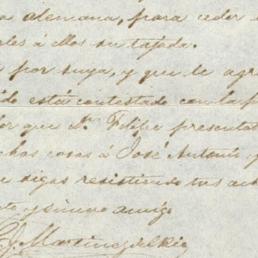 a alemana, para ceder
eles á ellos su tajada.
a por suya, y que le agr
ido está contestado con la p
lor que Dn. Felipe presenta
chas cosas á José Antonio y
e sigas resistiendo tus a
to y sincero amigo
Martinez del Rio